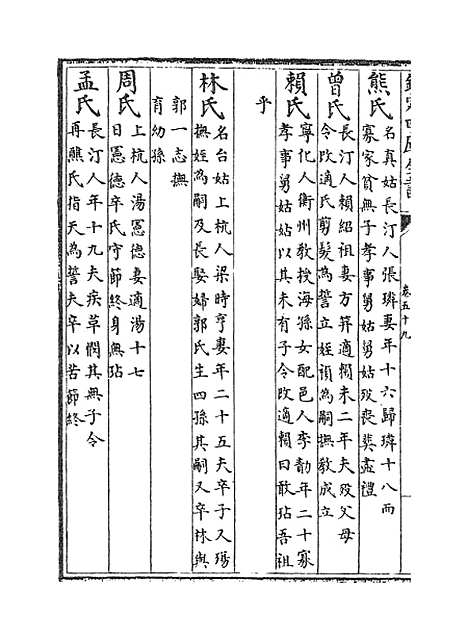 欽定四庫全書
卷五十九
熊氏
名真姑長汀人張璘妻年十六歸璘十八而
寡家貧無子孝事舅姑舅姑歿喪葬盡禮
曾氏
長汀人賴紹祖妻方笄適賴未二年夫歿父母
令改適氏剪髮為誓立姪禎為嗣撫教成立
賴氏
寧化人衡州教授海孫女配邑人李勣年二十寡
孝事舅姑姑以其未有子令改適賴曰敢玷吾祖
乎
林氏
名台姑上杭人梁時亨妻年二十五夫卒子又殤
撫姪為嗣及長娶婦郭氏生四孫其嗣又卒林與
郭一志撫
育幼孫
周氏
上杭人湯憲德妻適湯十七
日憲德卒氏守節終身無玷
孟氏
長汀人年十九夫疾草憫其無子令
再醮氏指天為誓夫卒以苦節終